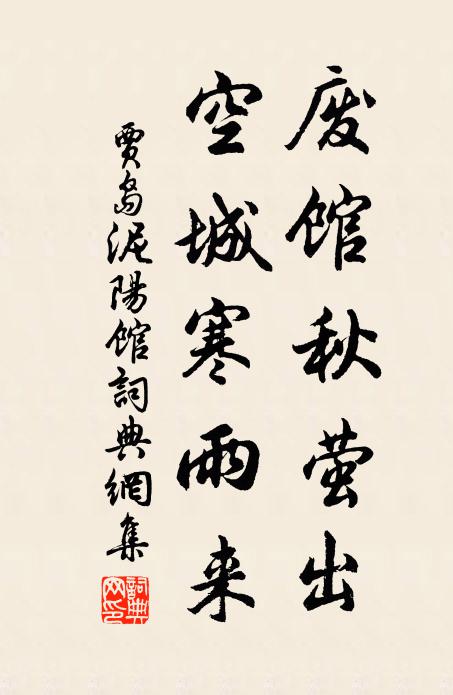 废馆秋萤出
空城寒雨来
贾岛泥陽馆詞典網集
詞典网印